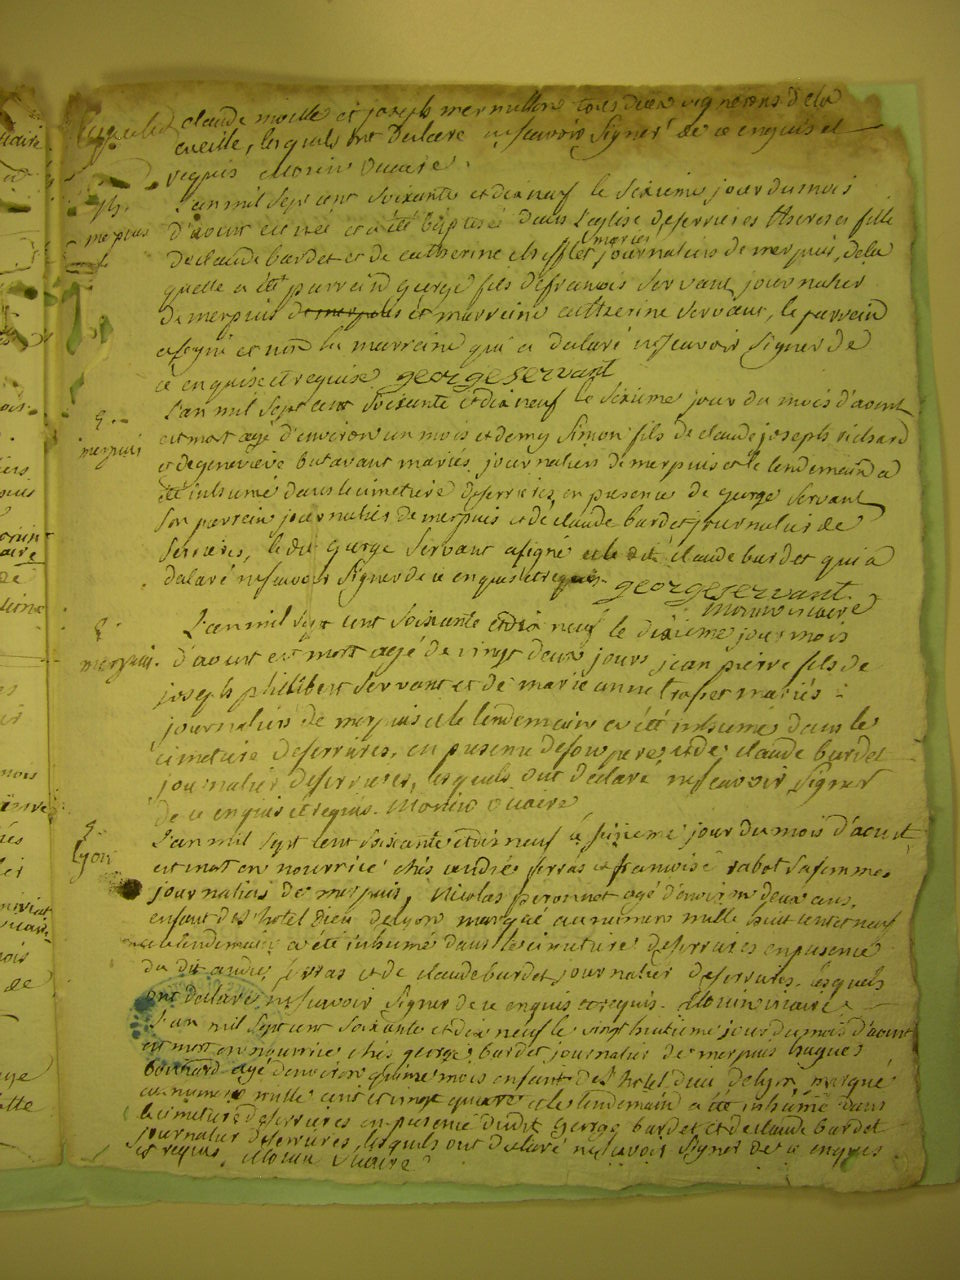 claude moille et joseph mermillon tous deux vignerons dela
cueille, lesquels ont declaré ne scavoir signer de ce enquis et
requis Morin vicaire.
L'an mil sept cent soixante et dix neuf le sixieme jour du mois
merpuis
d'aoust est née et a été baptisée dans l'eglise deserrieres therese fille
de claude bardet et de catherine chifflet mariés journaliers de merpuis, dela
quelle a été parraind george fils defranois servant journalier
de merpuis et marreine catherine servant, le parrain
a signé et non la marreine qui a declaré ne scavoir signer de
ce enquise et requise georgeservant
L'an mil sept cent soixante et dix neuf le sixieme jour du mois d'aoust
merpuis
est mort agé d'environ un mois et demy simon fils de claude joseph richard
et degenevieve butavant mariés journaliers de merpuis et le lendemain a
été inhumé dans le cimetiere deserrieres en presence de george servant
son parrein journalier de merpuis et de claude bardet journalier de
serrieres, le dit george servant a signé et le dit claude bardet qui a
declaré ne scavoir signer de ce enquis et requis. georgeservant
Morin vicaire
L'an mil sept cent soixante et dix neuf le dixieme jour mois
merpuis.
d'aoust est mort agé de vingt deux jours jean pierre fils de
joseph philibert servant et de marie anne mariés
journaliers de merpuis et le lendemain a été inhumé dans le
cimetiere deserrieres, en presence deson pere, et de claude bardet
journalier deserrieres, lesquels ont declaré ne scavoir signer
de ce enquis et requis. Morin vicaire
L'an mil sept cent soixante et dix neuf le jour du mois d'aoust
Lyon
est mort en nourrice chés andré et francoise rabot sa femme
journaliers de merpuis, Nicolas peronnet agé d'environ deux ans,
enfant de l'hotel Dieu delyon marqué au numero mille huit cent et neuf
et le lendemain a été inhumé dans le cimetiere deserrieres en presence
du dit andré et de claude bardet journalier deserrieres. lesquels
ont declaré ne scavoir signer de ce enquis et requis. Morin vicaire
L'an mil sept cent soixante et dix neuf le vingt huitieme jour du mois d'aoust
est mort en nourrice chés george bardet journalier de merpuis hugues
agé d'environ quinze mois enfant de l'hotel dieu delyon, marqué
au numero mille cent et vingt quatre et le lendemain a été inhumé dans
le cimetiere deserrieres en presence dudit george bardet et de claude bardet
journalier deserrieres, lesquels ont declaré ne scavoir signer de ce enquis
et requis. Morin vicaire